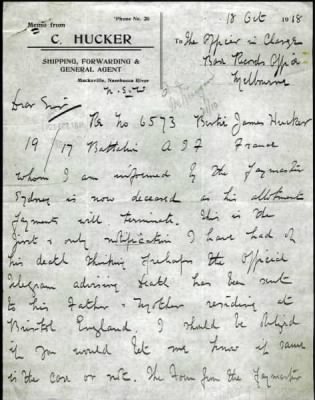 'Phone No. 20
Memo from
C. HUCKER
SHIPPING, FORWARDING &
GENERAL AGENT
Macksville, Nambucca River
N.S.W
18 Oct 1918
To The Officer in Charge
Base Records Office
Melbourne
Dear Sir
Re No 6573 Bertie James Hucker
19/17 Battalion A I F France
whom I am informed by the Paymaster
Sydney is now deceased as his allotment
payment will terminate. This is the
first & only notification I have had of
his death thinking perhaps the Official
telegram advising death has been sent
to his Father & Mother residing at
Bristol England. I should be obliged
if you would let me know if same
is the case or not. The Form from the Paymaster